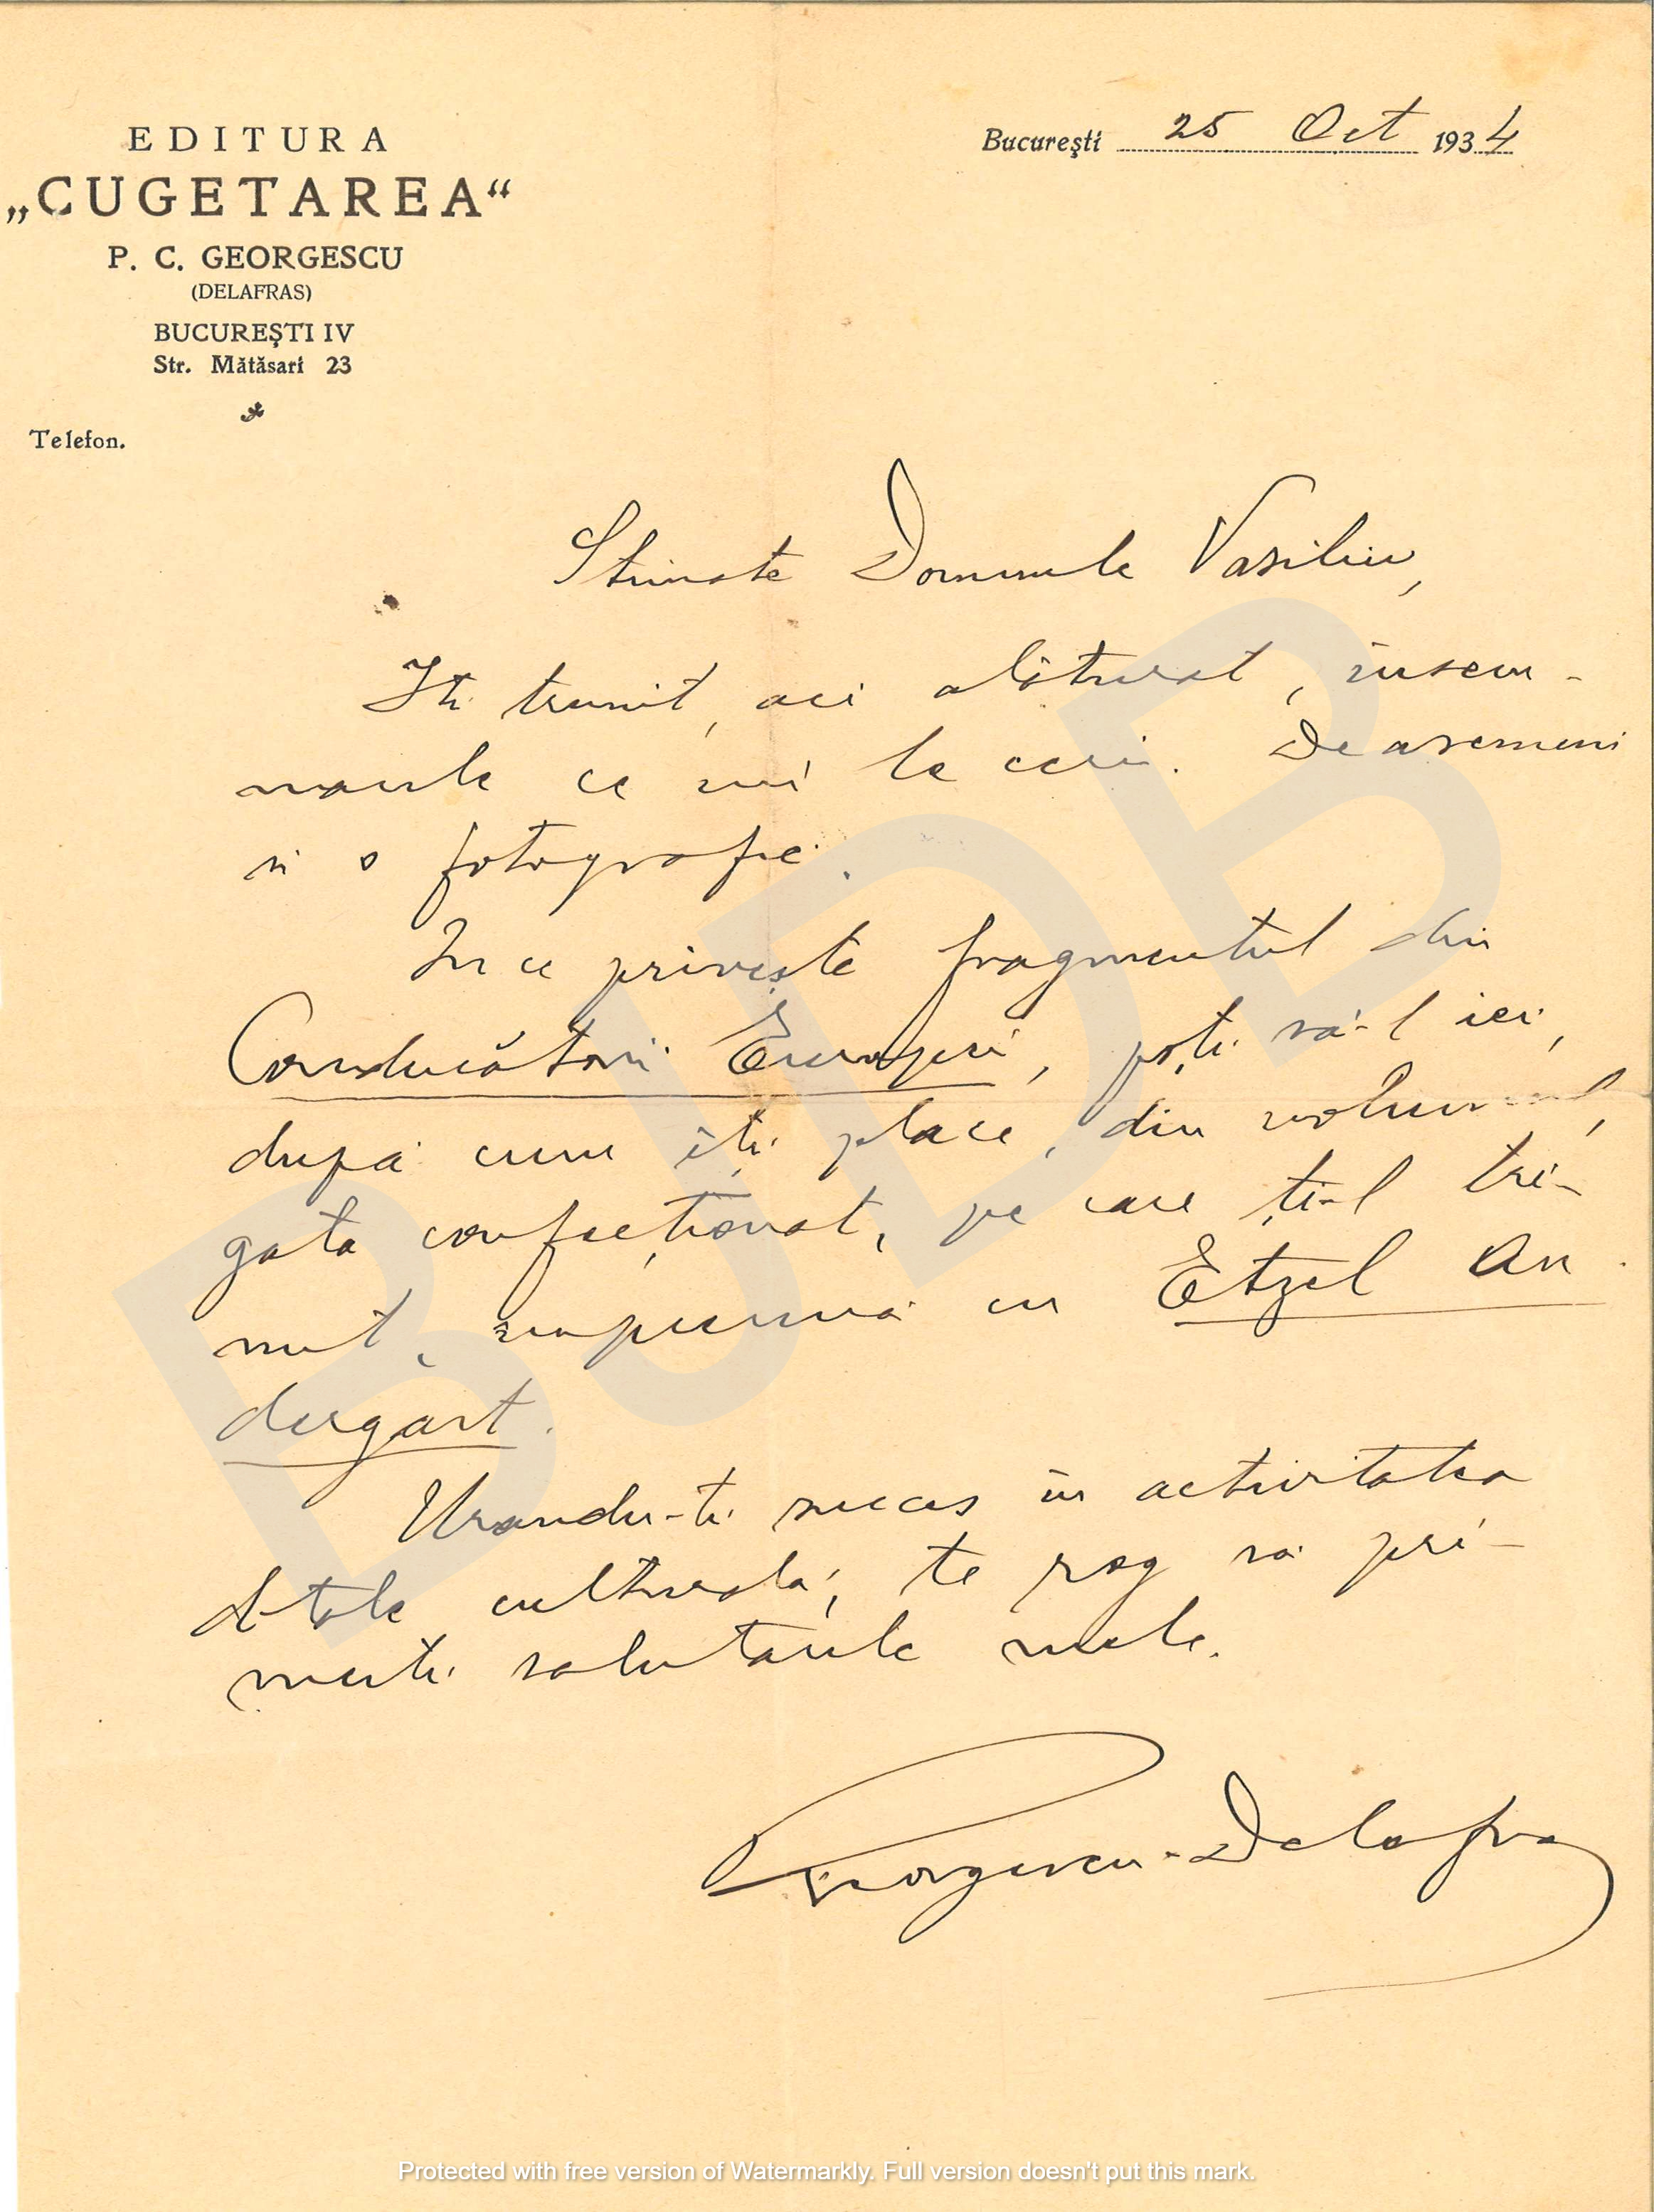 EDITURA
„CUGETAREA“
P. C. GEORGESCU
(DELAFRAS)
BUCUREŞTI IV
Str. Mătăsari 23
Telefon.
Bucureşti 25 Oct 1934
Stimate Domnule Vasiliu,
Iti trimit, aci alăturat, însem-
nările ce mi le ceri. Deasemeni
si o fotografie.
In ce priveşte fragmentul din
Conducătorii Europei, poţi să-l iei,
după cum îţi place, din volumul,
gata confecţionat, pe care ţi-l tri-
mit, împreună cu Etzel An
dergast.
Urandu-ti succes în activitatea
d-tale culturală, te rog să pri-
mesti salutările mele.
Georgescu-Delafras
BJDB
Protected with free version of Watermarkly. Full version doesn't put this mark.